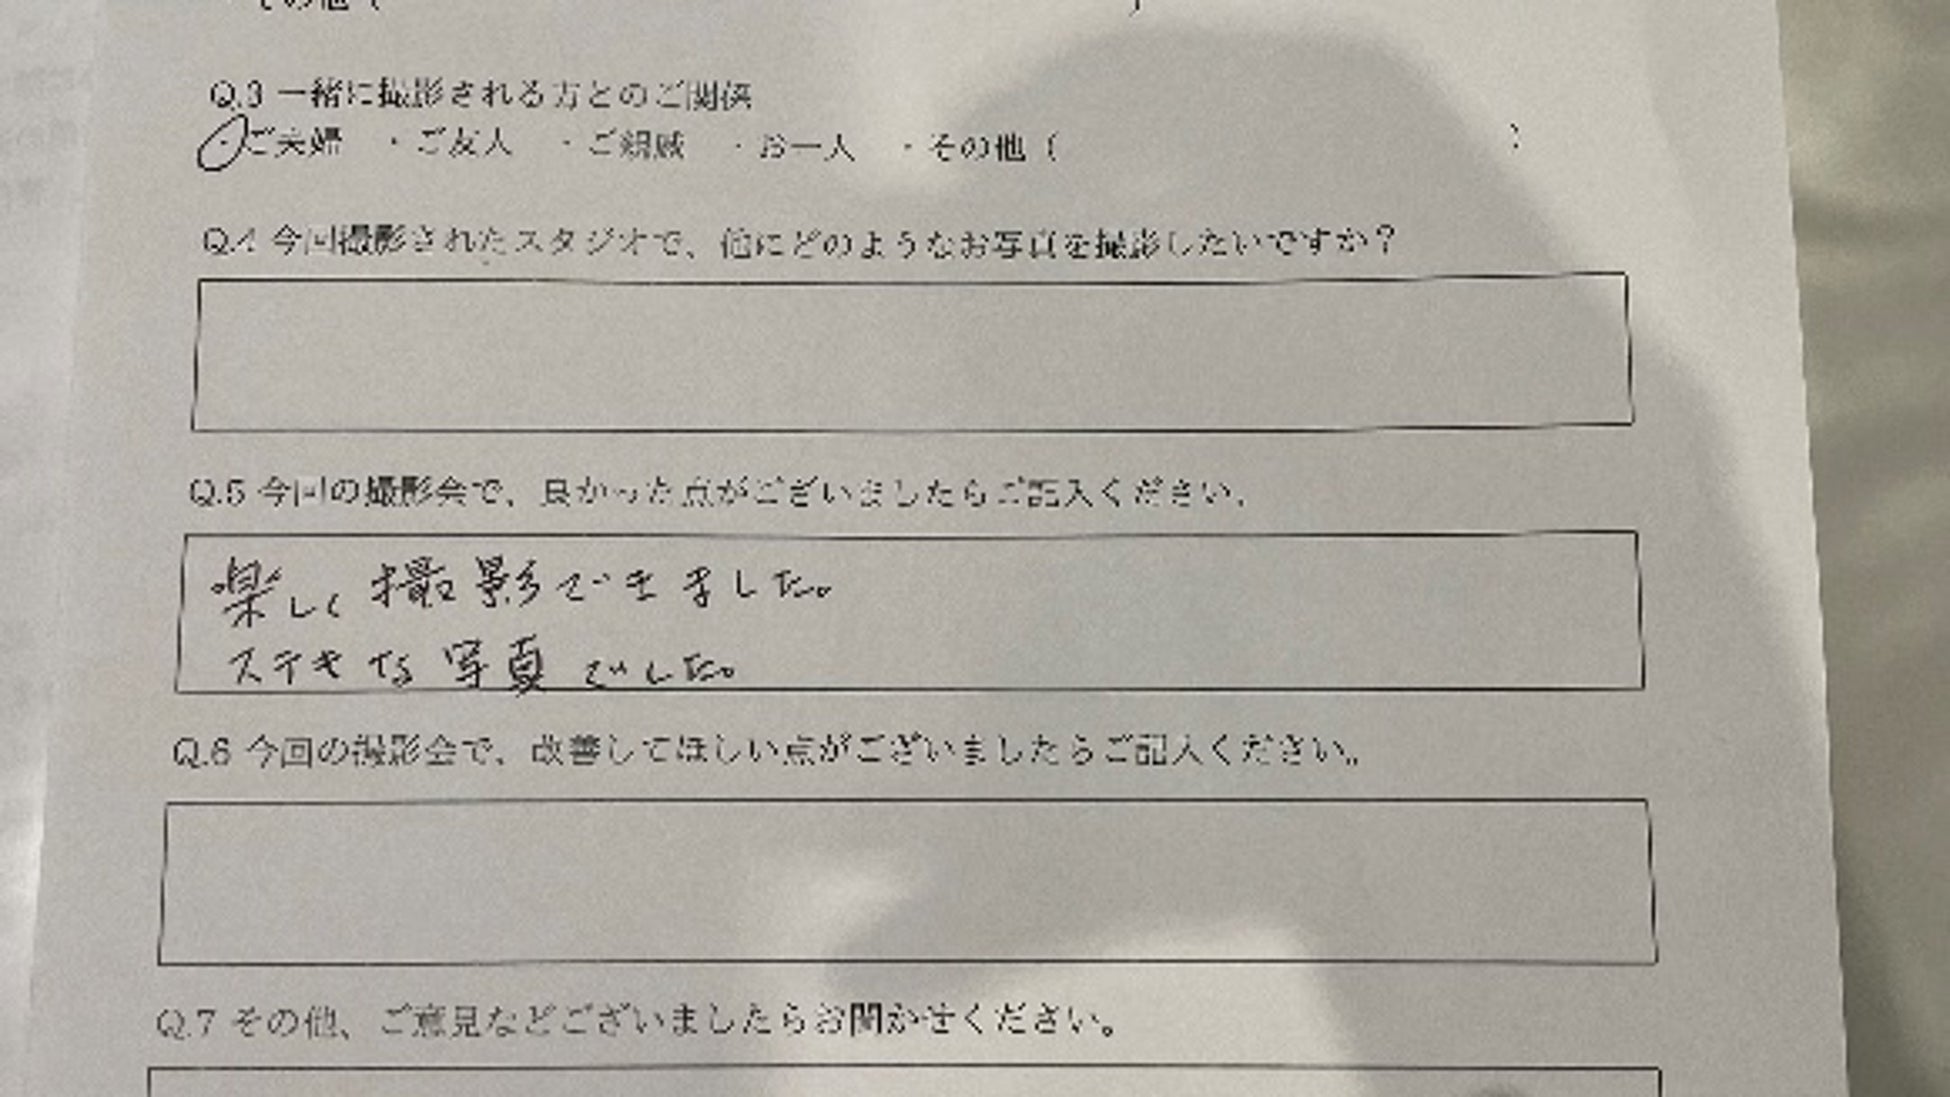 その他（ ）
Q.3 一緒に撮影される方とのご関係
・ご夫婦 ・ご友人 ・ご親戚 ・お一人 ・その他（ ）
Q.4 今回撮影されたスタジオで、他にどのようなお写真を撮影したいですか？
Q.5 今回の撮影会で、良かった点がございましたらご記入ください。
楽しく撮影できました。
ステキな写真でした。
Q.6 今回の撮影会で、改善してほしい点がございましたらご記入ください。
Q.7 その他、ご意見などございましたらお聞かせください。